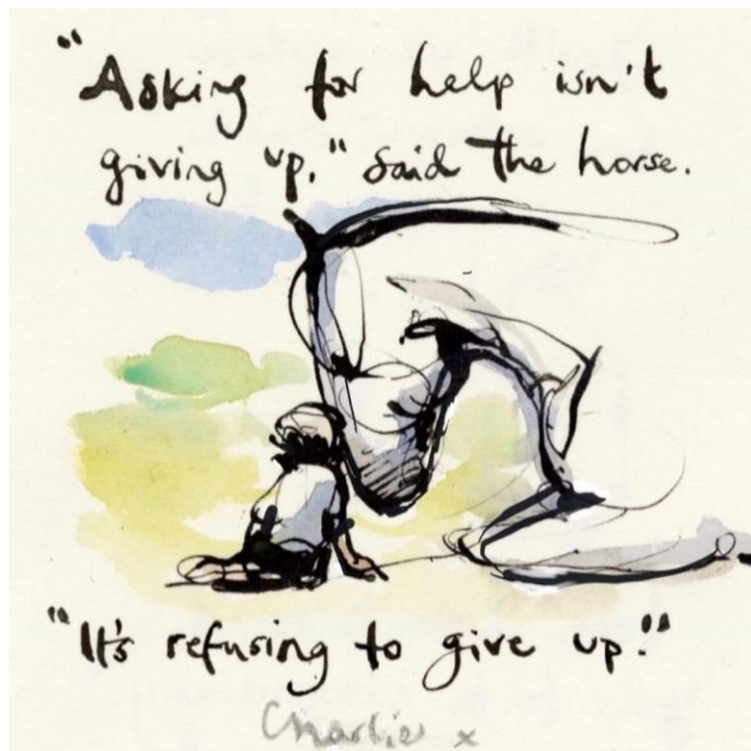 "Asking for help isn't
giving up," said the horse.
"It's refusing to give up."
Charlie x